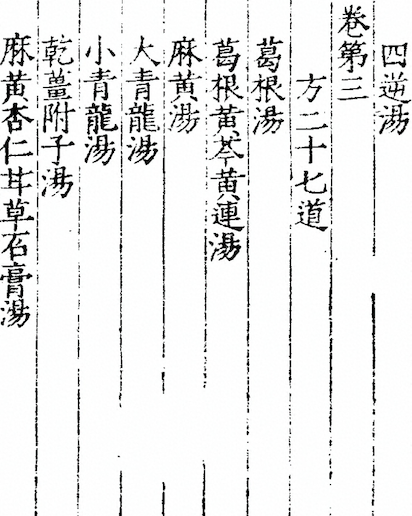 四逆湯
卷第三
方二十七道
葛根湯
葛根黃芩黃連湯
麻黃湯
大青龍湯
小青龍湯
乾薑附子湯
麻黃杏仁甘草石膏湯